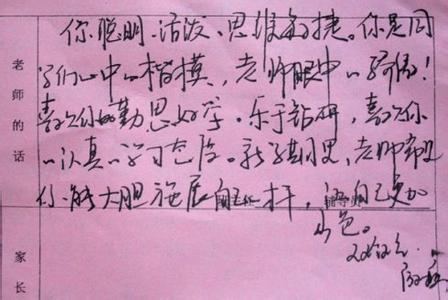 老师的话
你聪明、活泼、思维敏捷。你是同
学们心中的楷模，老师眼中的骄傲！
喜欢你的勤思好学，乐于钻研，喜欢你
的认真的学习态度。新学期里，老师希望
你能大胆施展自己 才，让自己更加
出色。
家长